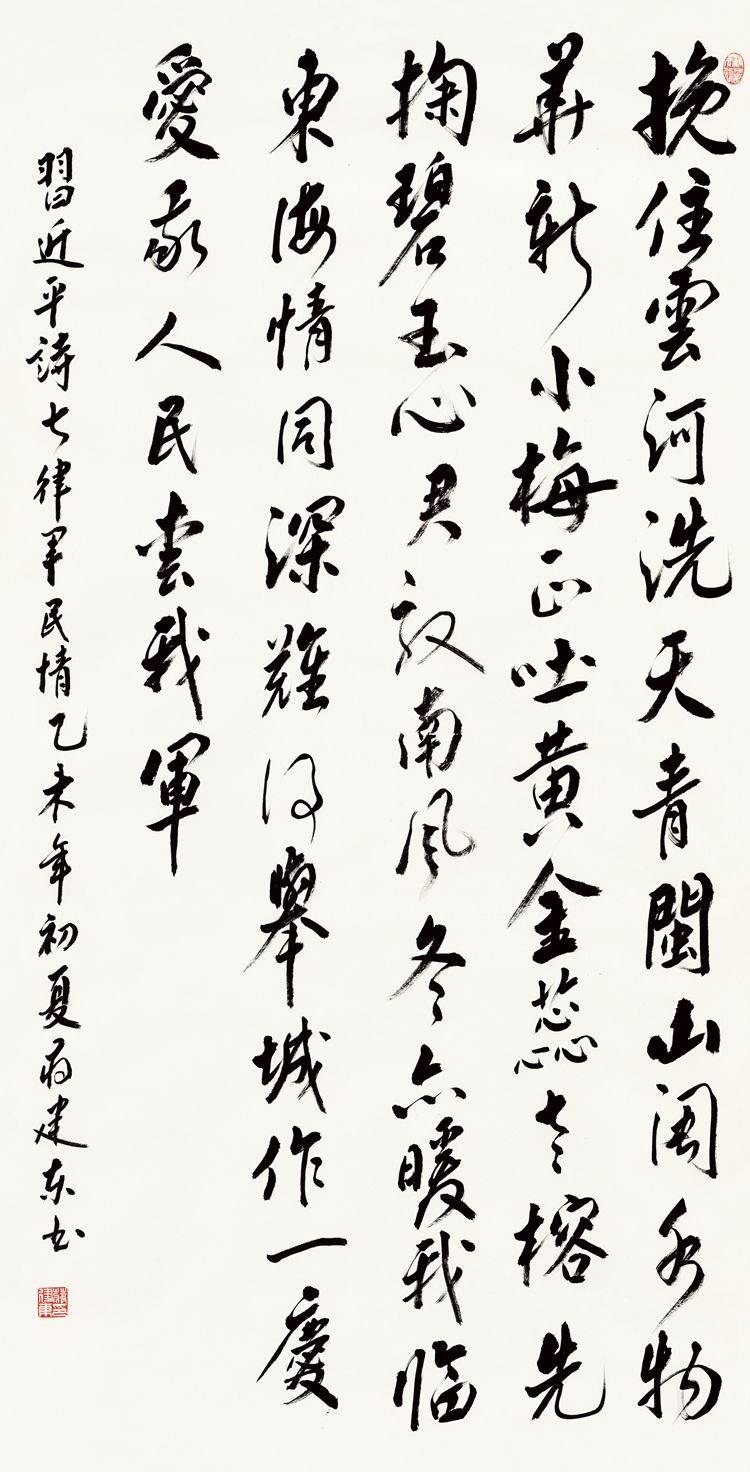 挽住雲河洗天青閩山闽水物
華新小梅正吐黄金蕊老榕先
掬碧玉心君驭南風冬亦暖我臨
東海情同深難得舉城作一慶
愛我人民爱我軍
習近平詩七律軍民情乙未年初夏蔣建東書